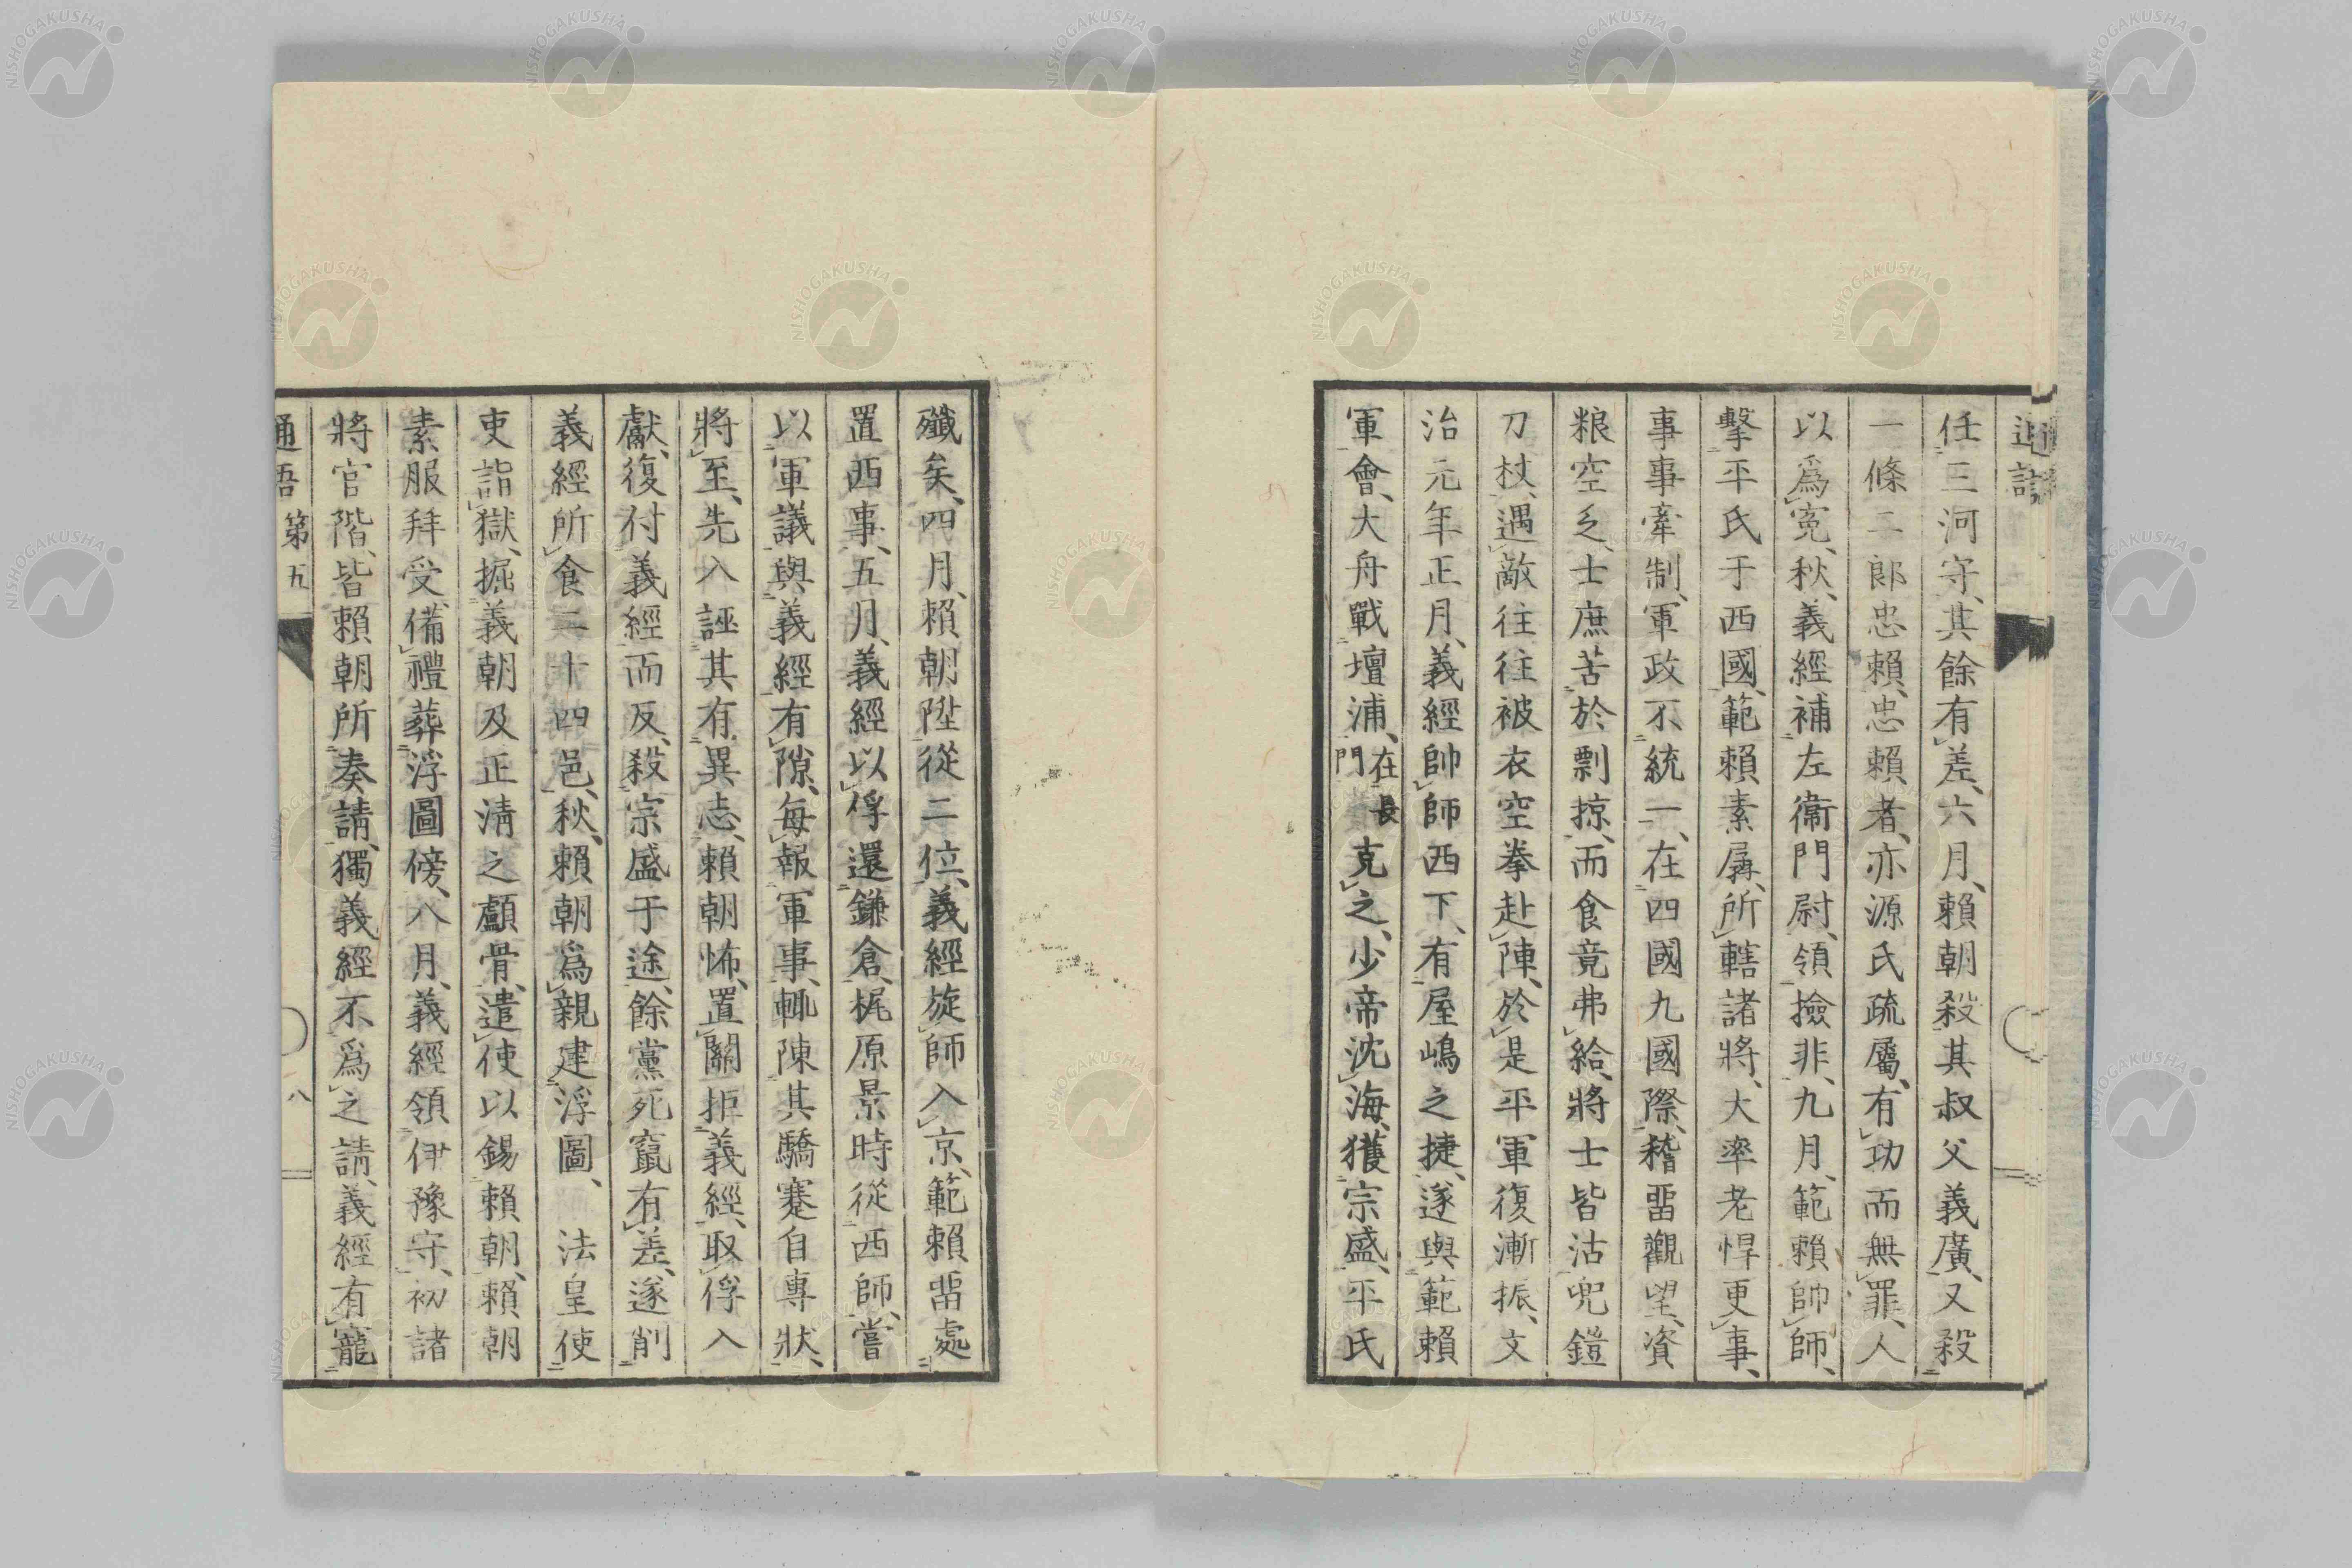 任三河守、其餘有差、六月、賴朝殺其叔父義廣、又殺
一條二郎忠賴、忠賴者、亦源氏疏屬、有功而無罪、人
以爲寃、秋、義經補左衞門尉、領撿非、九月、範賴帥師、
擊平氏于西國、範賴素孱、所轄諸將、大率老悍更事、
事事牽制、軍政不統一、在四國九國際、稽畱觀望、資
粮空乏、士庶苦於剽掠、而食竟弗給、將士皆沽兜鎧
刀杖、遇敵往往被衣空拳赴陳、於是平軍復漸振、文
治元年正月、義經帥師西下、有屋嶋之捷、遂與範賴
軍會、大舟戰壇浦、在長門克之、少帝沈海、獲宗盛、平氏
殲矣、四月、賴朝陞從二位、義經旋師入京、範賴畱處
置西事、五月、義經以俘還鎌倉、梶原景時從西師、嘗
以軍議與義經有隙、每報軍事、輒陳其驕蹇自專狀、
將至、先入誣其有異志、賴朝怖、置關拒義經、取俘入
獻、復付義經而反、殺宗盛于途、餘黨死竄有差、遂削
義經所食二十四邑、秋、賴朝爲親建浮圖、法皇使
吏詣獄、掘義朝及正淸之顱骨、遣使以錫賴朝、賴朝
素服拜受、備禮葬浮圖傍、八月、義經領伊豫守、初諸
將官階、皆賴朝所奏請、獨義經不爲之請、義經有寵
通語 第五 八
NISHOGAKUSHA